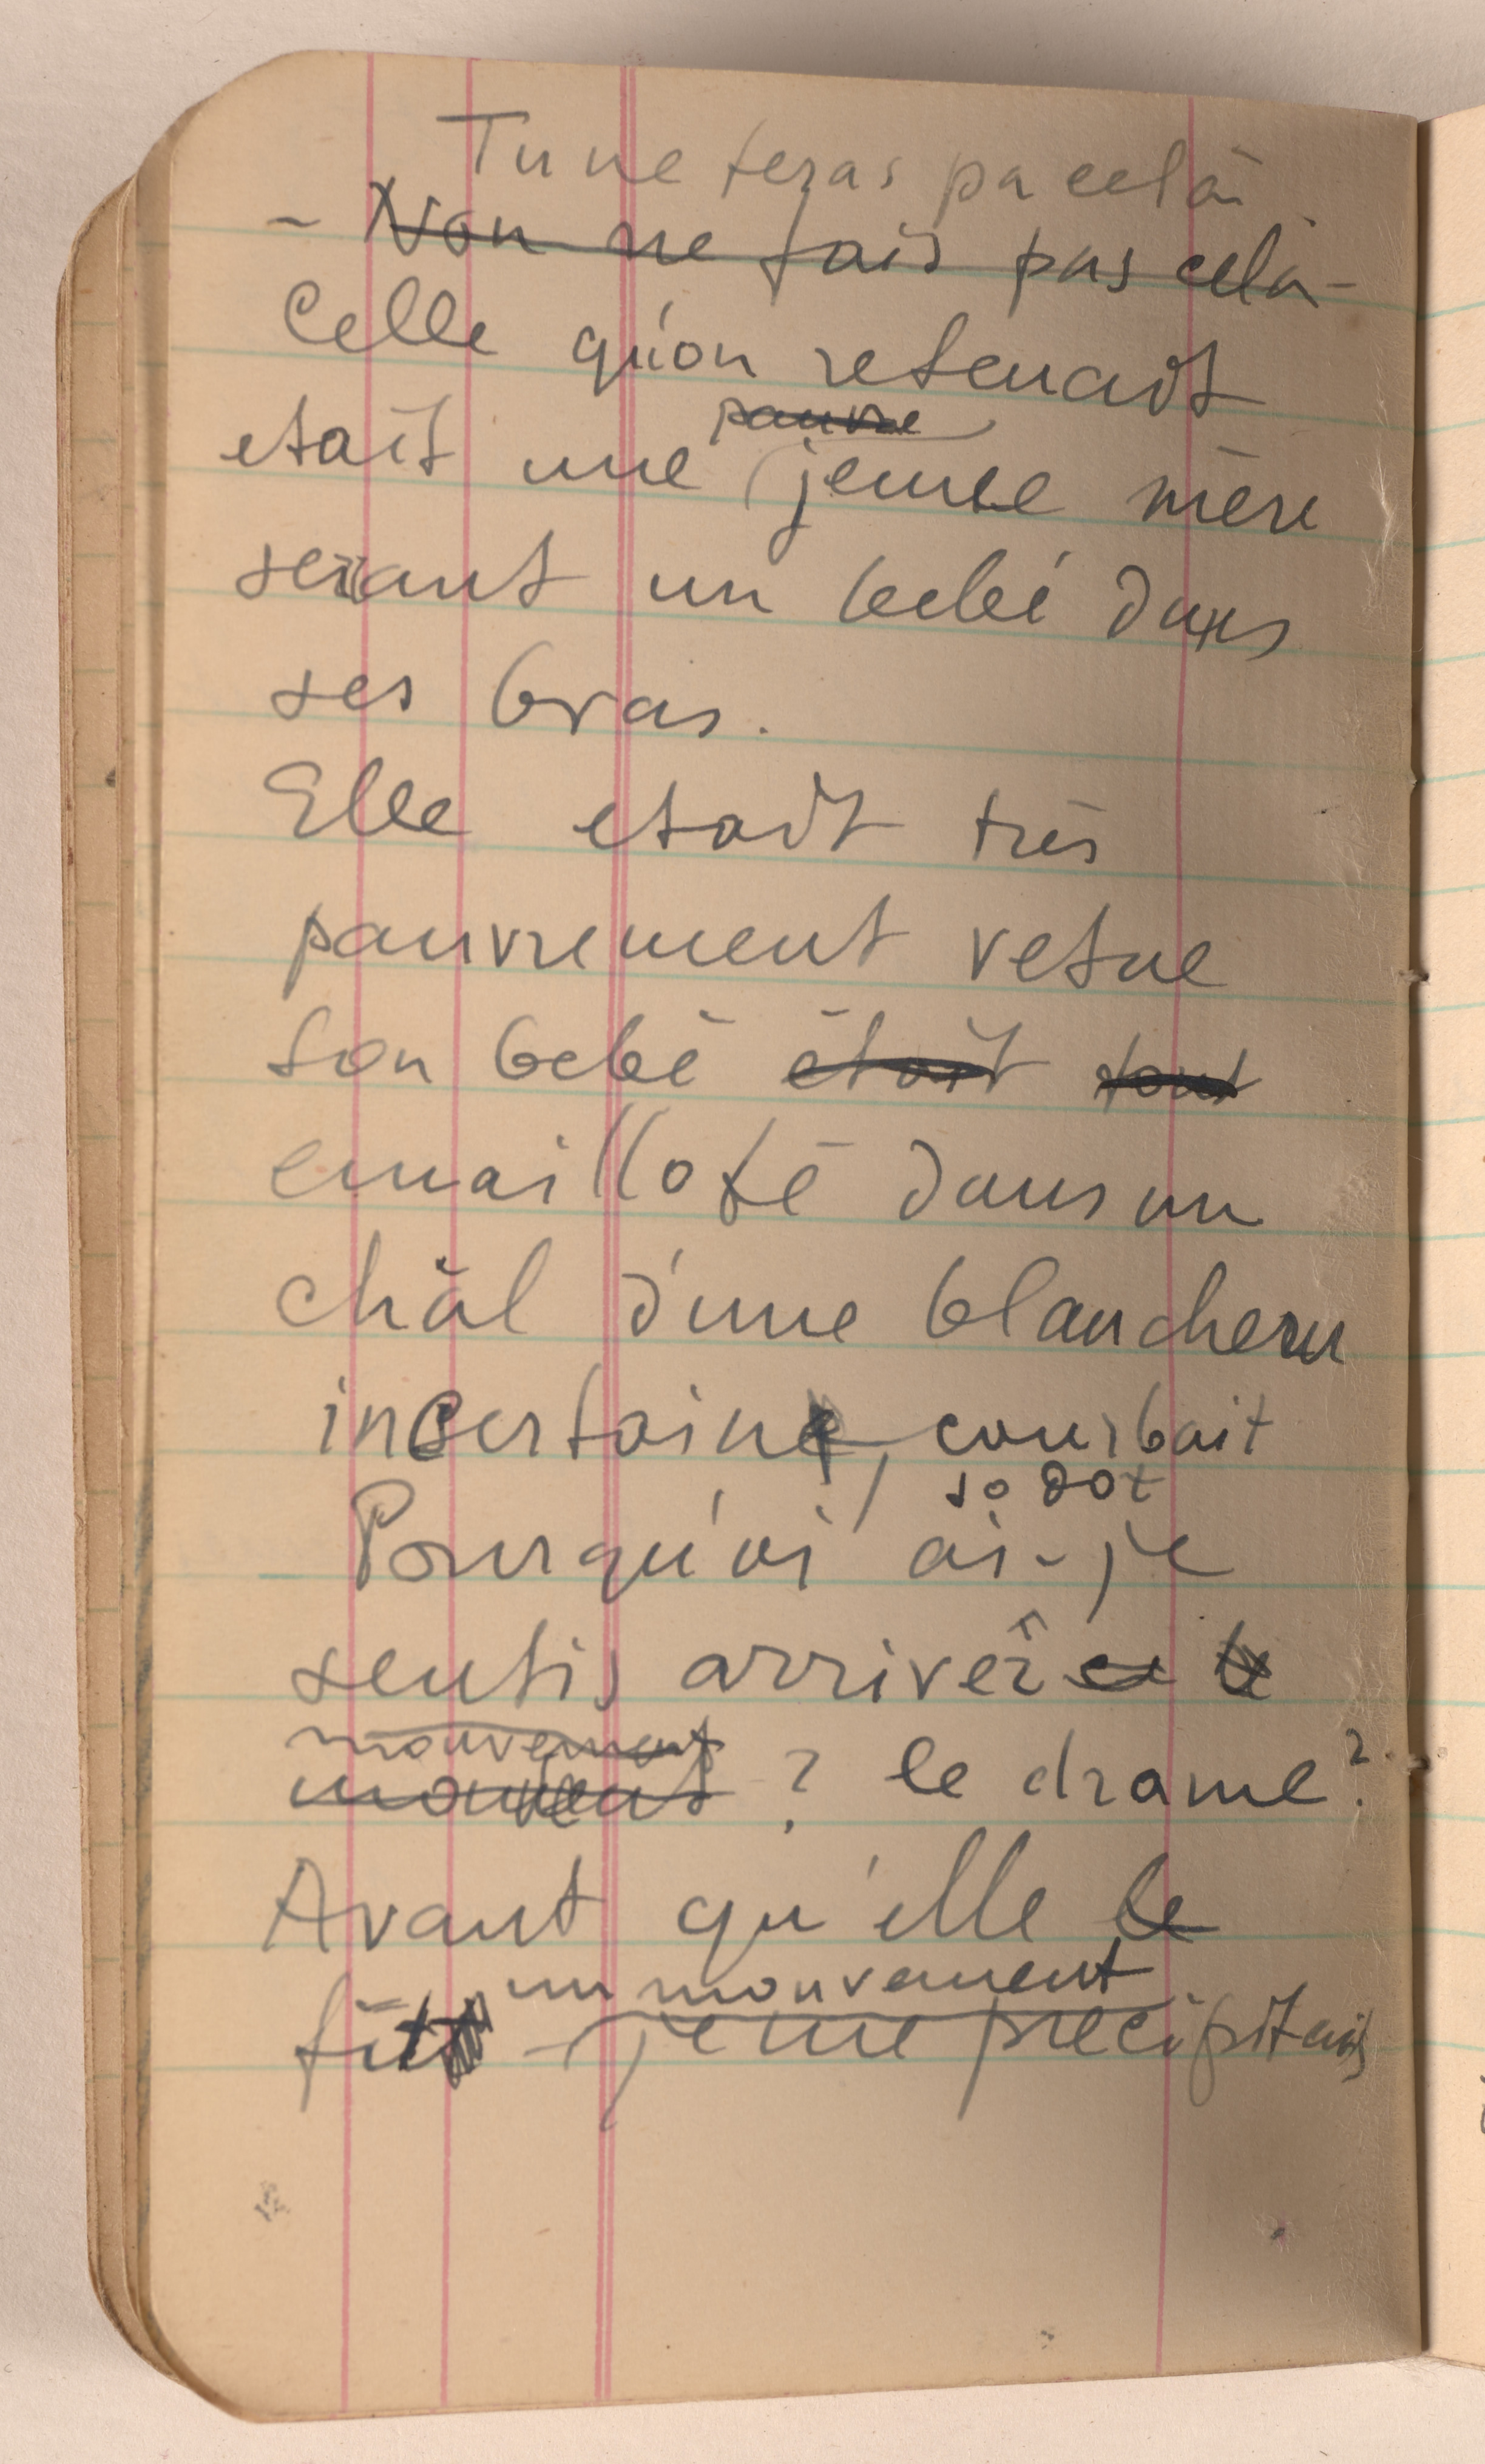 Tu ne feras pa celà
- Non ne fais pas cela -
Celle qu'on retenait
pauvre
etait une jeune mère
serant un bebé dans
ses bras.
Elle etait très
pauvrement vetue
son bebé était tout
emailloté dans un
châl d'une blancheur
incertaine, courbait
so dot
Pourqu'oi ai-je
sentis arriver ce le
mouvement
? le drame?
Avant qu'elle le
un mouvement
fit je me precipitais